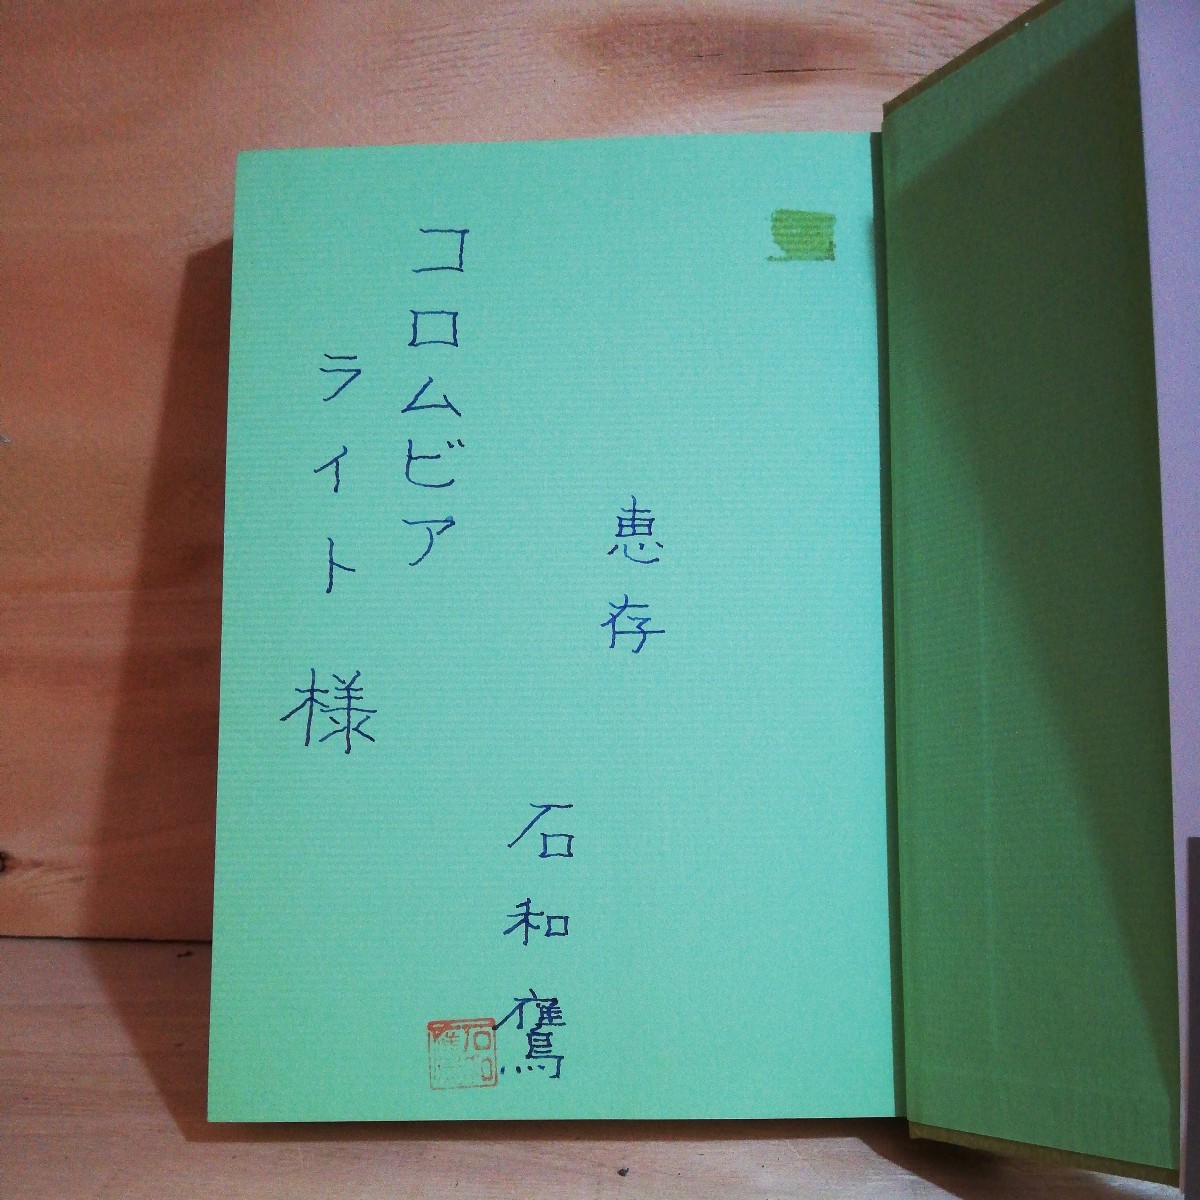 恵存
石和鷹
コロムビア
ライト様